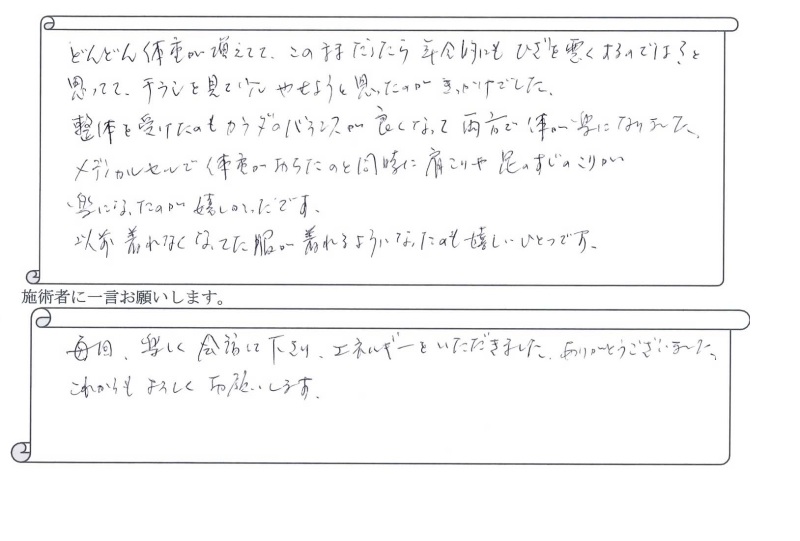 どんどん体重が増えてて、このままだったら年令的にもひざを悪くするのでは?と
思ってて、チラシを見て やせようと思ったのがきっかけでした。
整体を受けたのもカラダのバランスが良くなって両方で体が楽になりました。
メディカルセルで体重が落ちたのと同時に肩こりや足のすじのこりが
楽になったのが嬉しかったです。
以前着れなくなってた服が着れるようになったのも嬉しいひとつです。
施術者に一言お願いします。
毎回、楽しく会話して下さり、エネルギーをいただきました。ありがとうございました。
これからもよろしくお願いします。